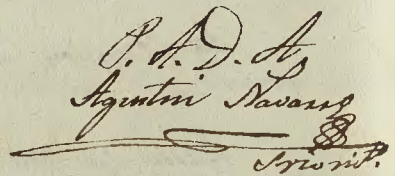 P. A. D. A.
Agustin Navarro
Sriorio.